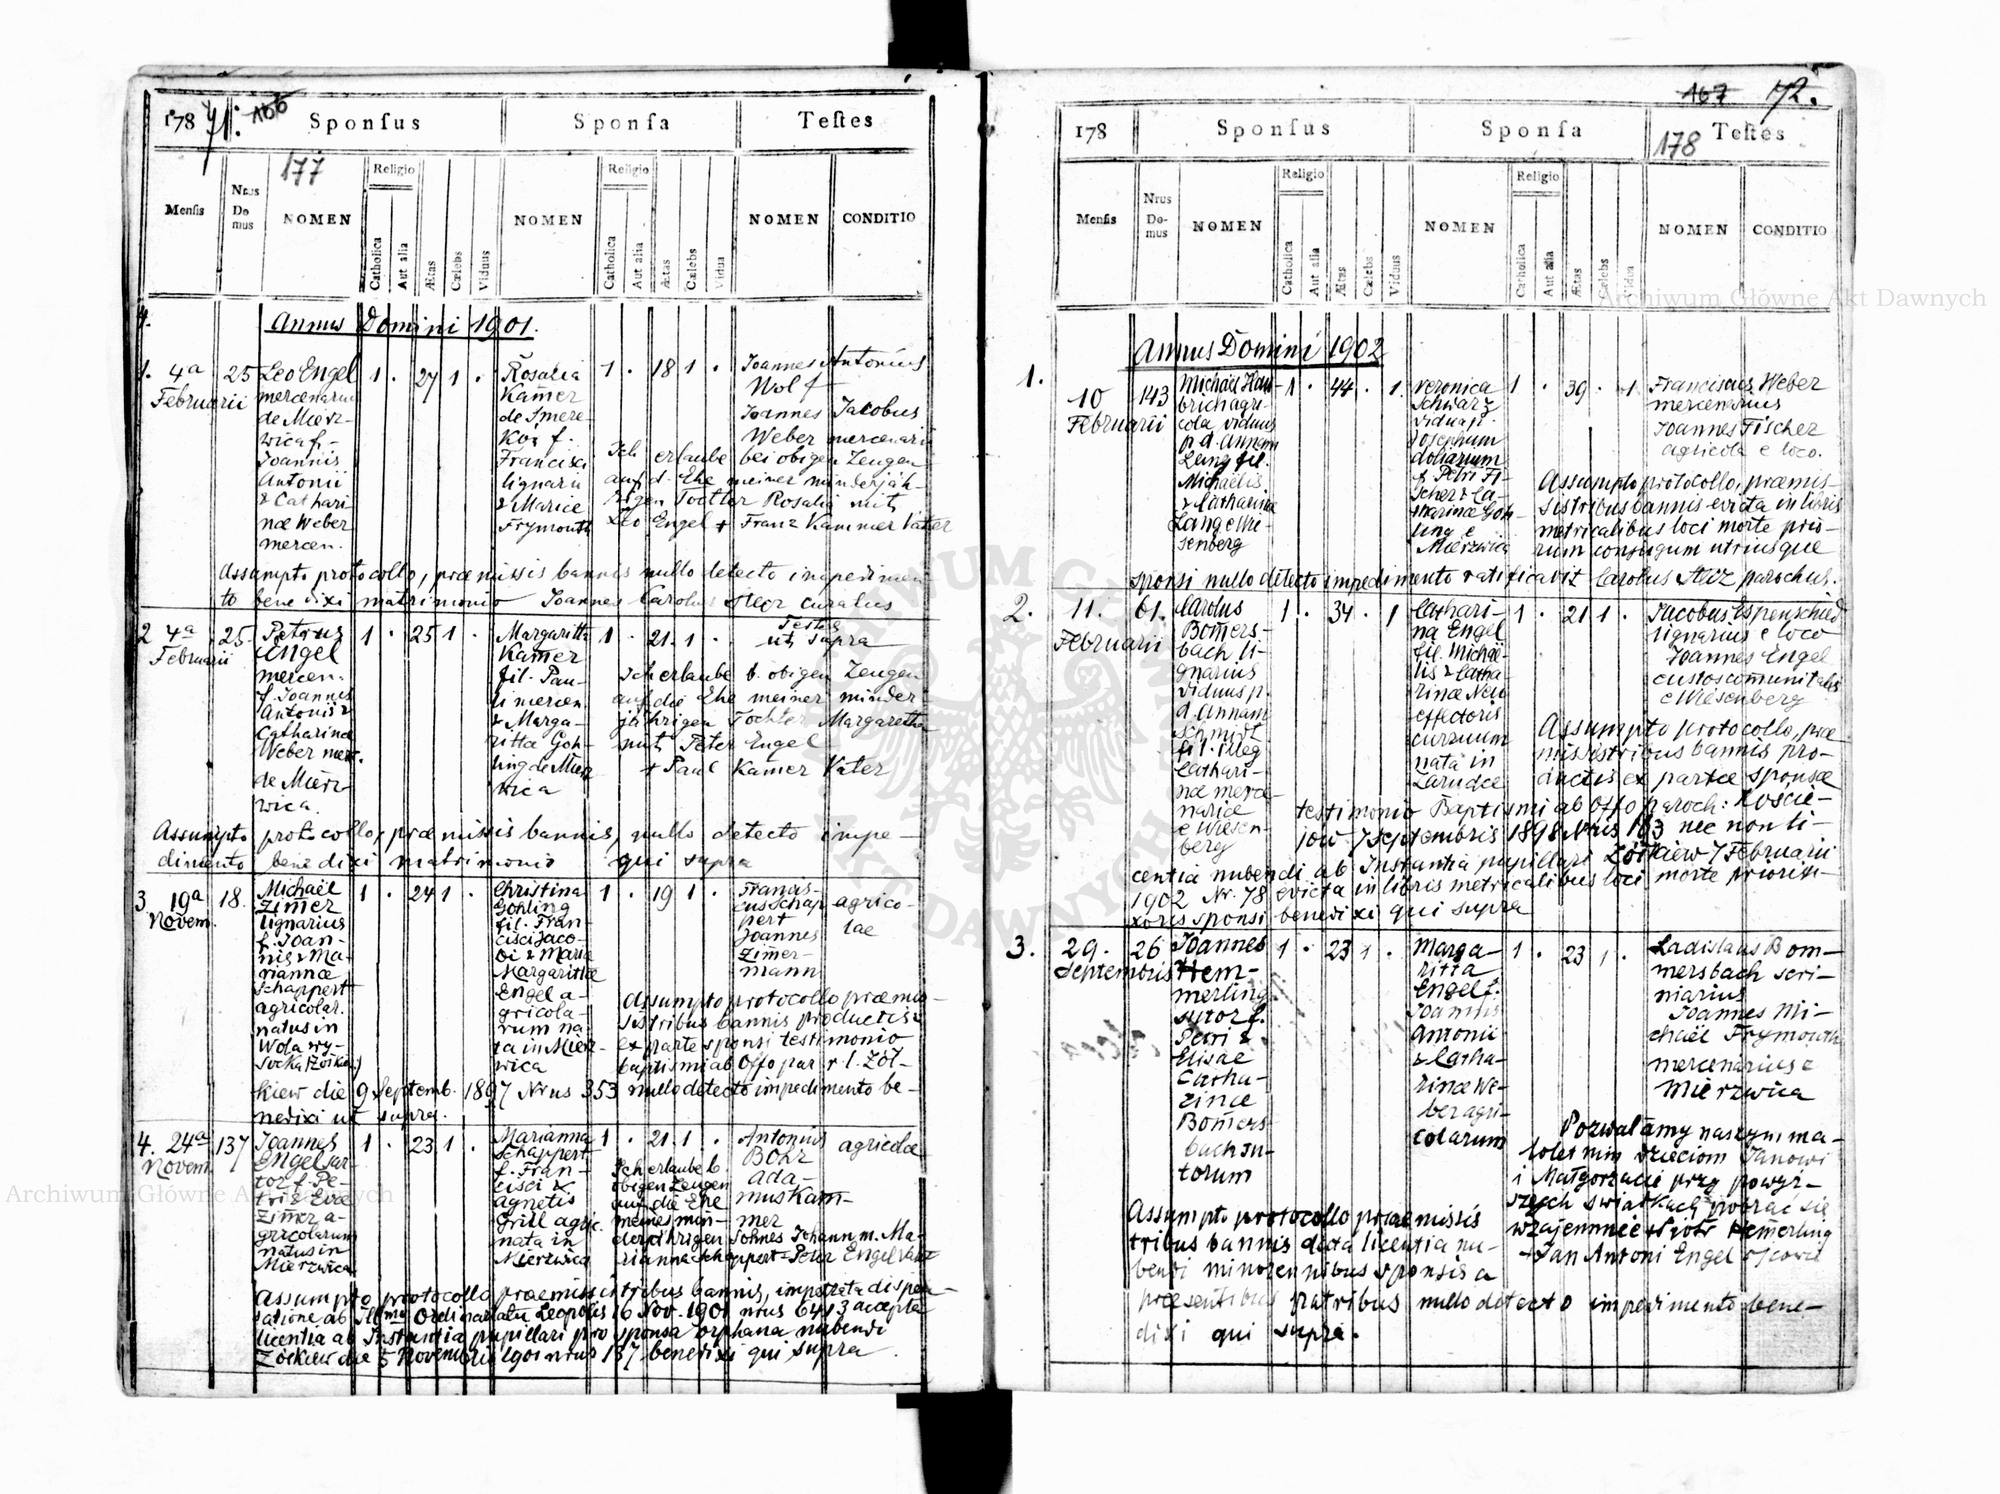 178 71. 166 Sponsus Sponsa Testes
177
Mensis Nrus Domus NOMEN Religio Catholica Aut alia Ætas Cœlebs Viduus NOMEN Religio Catholica Aut alia Ætas Cœlebs Vidua NOMEN CONDITIO
Annus Domini 1901.
1. 4a Februarii
25
Leo Engel
mercenarius
de Mierz-
wica f.
Joannis
Antonii
& Cathari-
næ Weber
mercen.
1 . 27 1 .
Rosalia
Kam̄er
de Smere-
kow f.
Francisci
lignarii
& Mariæ
Frymouth
1 . 18 1 .
Joannes Antonius
Wolf
Joannes Jacobus
Weber mercenarii
Ich erlaube bei obigen Zeugen
auf d. Ehe meiner minderjäh-
rigen Tochter Rosalia mit
Leo Engel + Franz Kammer Vater
Assumpto protocollo, præmissis bannis nullo detecto impedimen-
to benedixi matrimonio Joannes Carolus Herz curatus
2 4a Februarii
25.
Petrus
Engel
mercen.
f. Joannis
Antonii &
Catharinæ
Weber merc.
de Mierz-
wica.
1 . 25 1 .
Margaritta
Kam̄er
fil. Pau-
li mercen.
& Marga-
ritta Goh-
ling de Mierz
wica
1 . 21. 1 .
Testes
ut supra
Ich erlaube b. obigen Zeugen
auf die Ehe meiner minder
jährigen Tochter Margaretha
mit Peter Engel
+ Paul Kam̄er Vater
Assumpto protocollo, præmissis bannis, nullo detecto impe-
dimento benedixi matrimonio qui supra
3 19a Novem.
18.
Michaël
Zim̄er
lignarius
f. Joan-
nis & Ma-
riannæ
Schappert
agricolar.
natus in
Wola wy-
socka (Żółkiew)
1 . 24 1 .
Christina
Gohling
fil. Fran-
cisci Jaco-
bi & Mariæ
Margarithæ
Engel a-
gricola-
rum na-
ta in Mierz-
wica
1 . 19 1 .
Francis-
cus Schap
pert
Joannes
Zim̄er-
mann
agrico-
lae
Assumpto protocollo præmis-
sis tribus bannis productis &
ex parte sponsi testimonio
baptismi ab Offo par r. l. Żół-
kiew die 9 Septemb. 1897 Nrus 353 nullo detecto impedimento be-
nedixi ut supra.
4. 24a Novem.
137
Joannes
Engel sar-
tor f. Pe-
tri & Evæ
Zim̄er a-
gricolarum
natus in
Mierzwica
1 . 23 1 .
Marianna
Schappert
f. Fran-
cisci &
Agnetis
Grill agric.
nata in
Mierzwica
1 . 21. 1 .
Antonius
Bohr
Ada-
mus Kam-
mer
agricolæ
Ich erlaube b.
obigen Zeugen
auf die Ehe
meines min-
derjährigen Sohnes Johann m. Ma-
rianna Schappert + Peter Engel Vater
Assumpto protocollo præmissis tribus bannis, impetrata dispen-
satione ab Illmo Ordinariatu Leopolis 6 Nov. 1901 nrus 6413 accepta
licentia ab Instantia pupillari pro sponsa orphana nubendi
Żółkiew die 5 Novembris 1901 nrus 137 benedixi qui supra.
167 172.
178 Sponsus Sponsa Testes
178
Mensis Nrus Domus NOMEN Religio Catholica Aut alia Ætas Cœlebs Viduus NOMEN Religio Catholica Aut alia Ætas Cœlebs Vidua NOMEN CONDITIO
Annus Domini 1902
1. 10 Februarii
143
Michaël Hau-
brich agri-
cola viduus
p. d. Annam
Lang fil.
Michaëlis
& Catharinæ
Lang e Wie-
senberg
1 . 44 . 1.
Veronica
Schwarz
vidua p.
Josephum
doliarium
f. Petri Fi-
scher & Ca-
tharinæ Goh-
ling e
Mierzwica
1 . 39 . 1.
Franciscus Weber
mercenarius
Joannes Fischer
agricola e loco.
Assumpto protocollo, præmis-
sis tribus bannis evicta in libris
metricalibus loci morte prio-
rum conjugum utriusque
sponsi nullo detecto impedimento ratificavit Carolus Herz parochus.
2. 11. Februarii
61.
Carolus
Bom̄ers-
bach li-
gnarius
viduus p.
d. Annam
Schmidt
fil. illeg
Cathari-
næ merce-
nariæ
e Wiesen-
berg
1 . 34 . 1
Cathari-
na Engel
fil. Michaë-
lis & Catha-
rinæ Neu
effectoris
curruum
nata in
Zarudce
1 . 21 1 .
Jacobus Espenschied
lignarius e loco
Joannes Engel
custos com̄unitatis
e Wiesenberg
Assumpto protocollo, præ
missis tribus bannis pro-
ductis ex parte sponsæ
testimonio Baptismi ab Offo paroch: Koście-
jow 7 Septembris 1898 Nrus 163 nec non li-
centia nubendi ab Instantia pupillari Żółkiew 7 Februarii
1902 Nr. 78 evicta in libris metricalibus loci morte prioris u-
xoris sponsi benedixi qui supra
3. 29. Septembris
26
Joannes
Hem-
merling
sutor f.
Petri &
Elisae
Catha-
rinæ
Bom̄ers-
bach su-
torum
1 . 23 1 .
Marga-
ritta
Engel f.
Joannis
Antonii
& Catha-
rinæ We-
ber agri-
colarum
1 . 23 1 .
Ladislaus Bom-
mersbach scri-
niarius
Joannes Mi-
chaël Frymouth
mercenarius e
Mierzwica
Pozwalamy naszym ma-
loletnim dzieciom Janowi
i Małgorzacie przy powyż-
szych świadkach pobrać się
wzajemnie + Piotr Hem̄erling
+ Jan Antoni Engel ojcowie
Assumpto protocollo præmissis
tribus bannis data licentia nu-
bendi minorennibus sponsis a
præsentibus patribus nullo detecto impedimento bene-
dixi qui supra.
Archiwum Główne Akt Dawnych
Archiwum Główne Akt Dawnych
ARCHIWUM GŁÓWNE AKT DAWNYCH